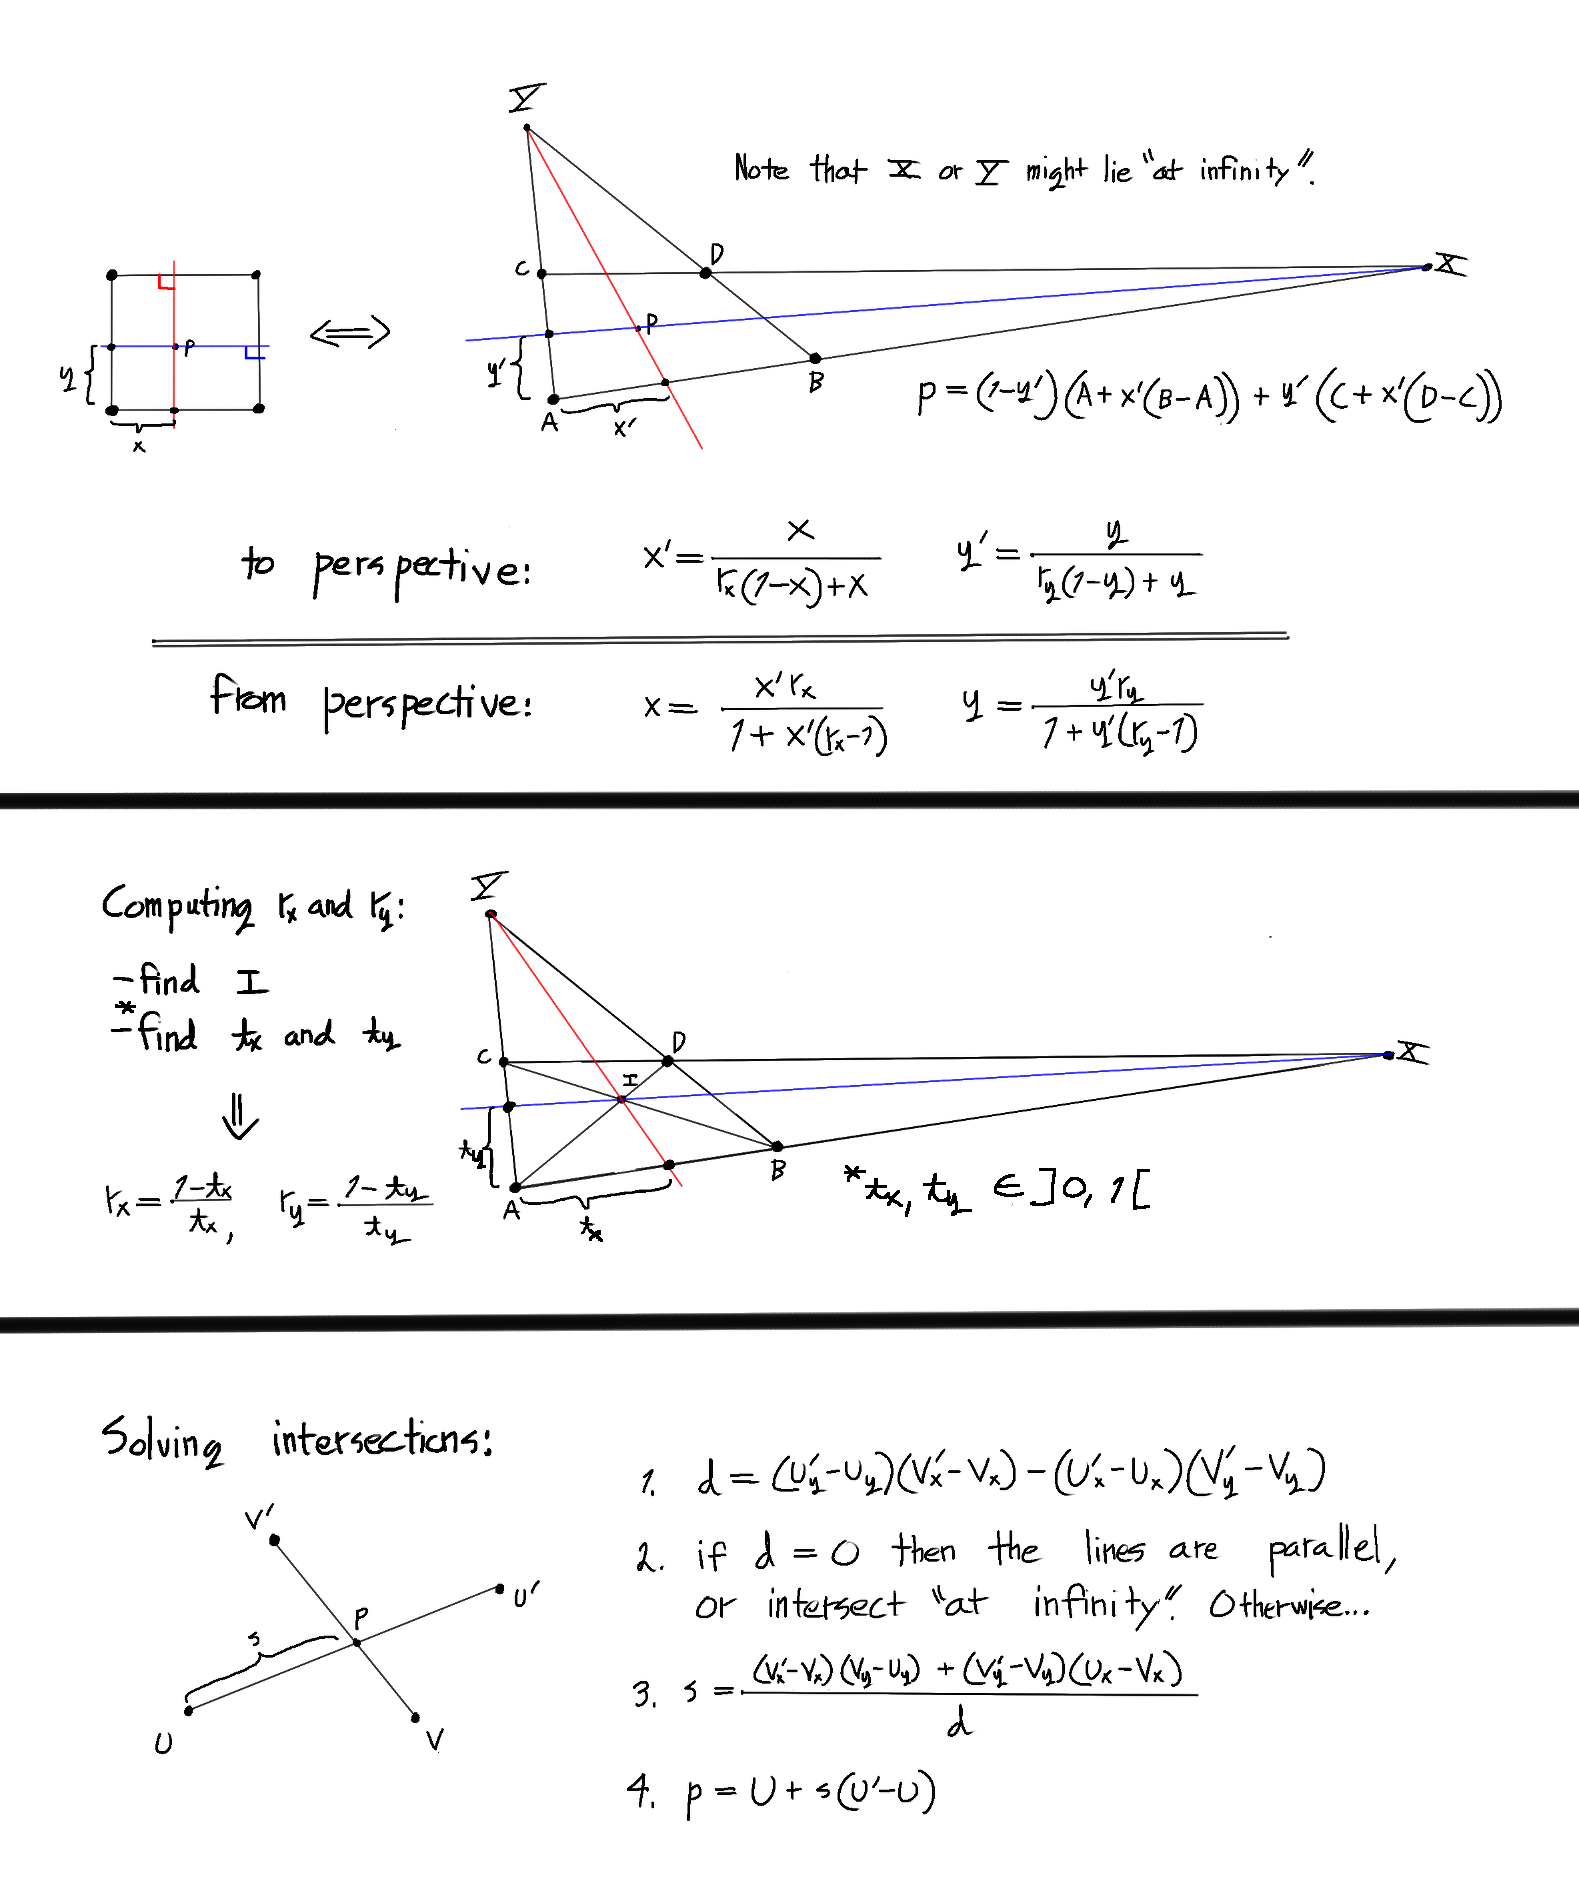 Y
Note that X or Y might lie "at infinity".
C D X
P
y
x
⟺
y' P
A x' B
p = (1-y')(A+x'(B-A)) + y'(C+x'(D-C))
to perspective: x' = x / (r_x(1-x)+x) y' = y / (r_y(1-y)+y)
from perspective: x = x'r_x / (1+x'(r_x-1)) y = y'r_y / (1+y'(r_y-1))
Computing r_x and r_y:
Y
-find I
*-find t_x and t_y
C D X
I
⇓
t_y
A t_x B
*t_x, t_y ∈ ]0,1[
r_x = (1-t_x)/t_x, r_y = (1-t_y)/t_y
Solving intersections:
V'
U'
P
s
U V
1. d = (U'_y-U_y)(V'_x-V_x)-(U'_x-U_x)(V'_y-V_y)
2. if d = 0 then the lines are parallel,
or intersect "at infinity". Otherwise...
3. s = ((V'_x-V_x)(V_y-U_y) + (V'_y-V_y)(U_x-V_x)) / d
4. p = U + s(U'-U)